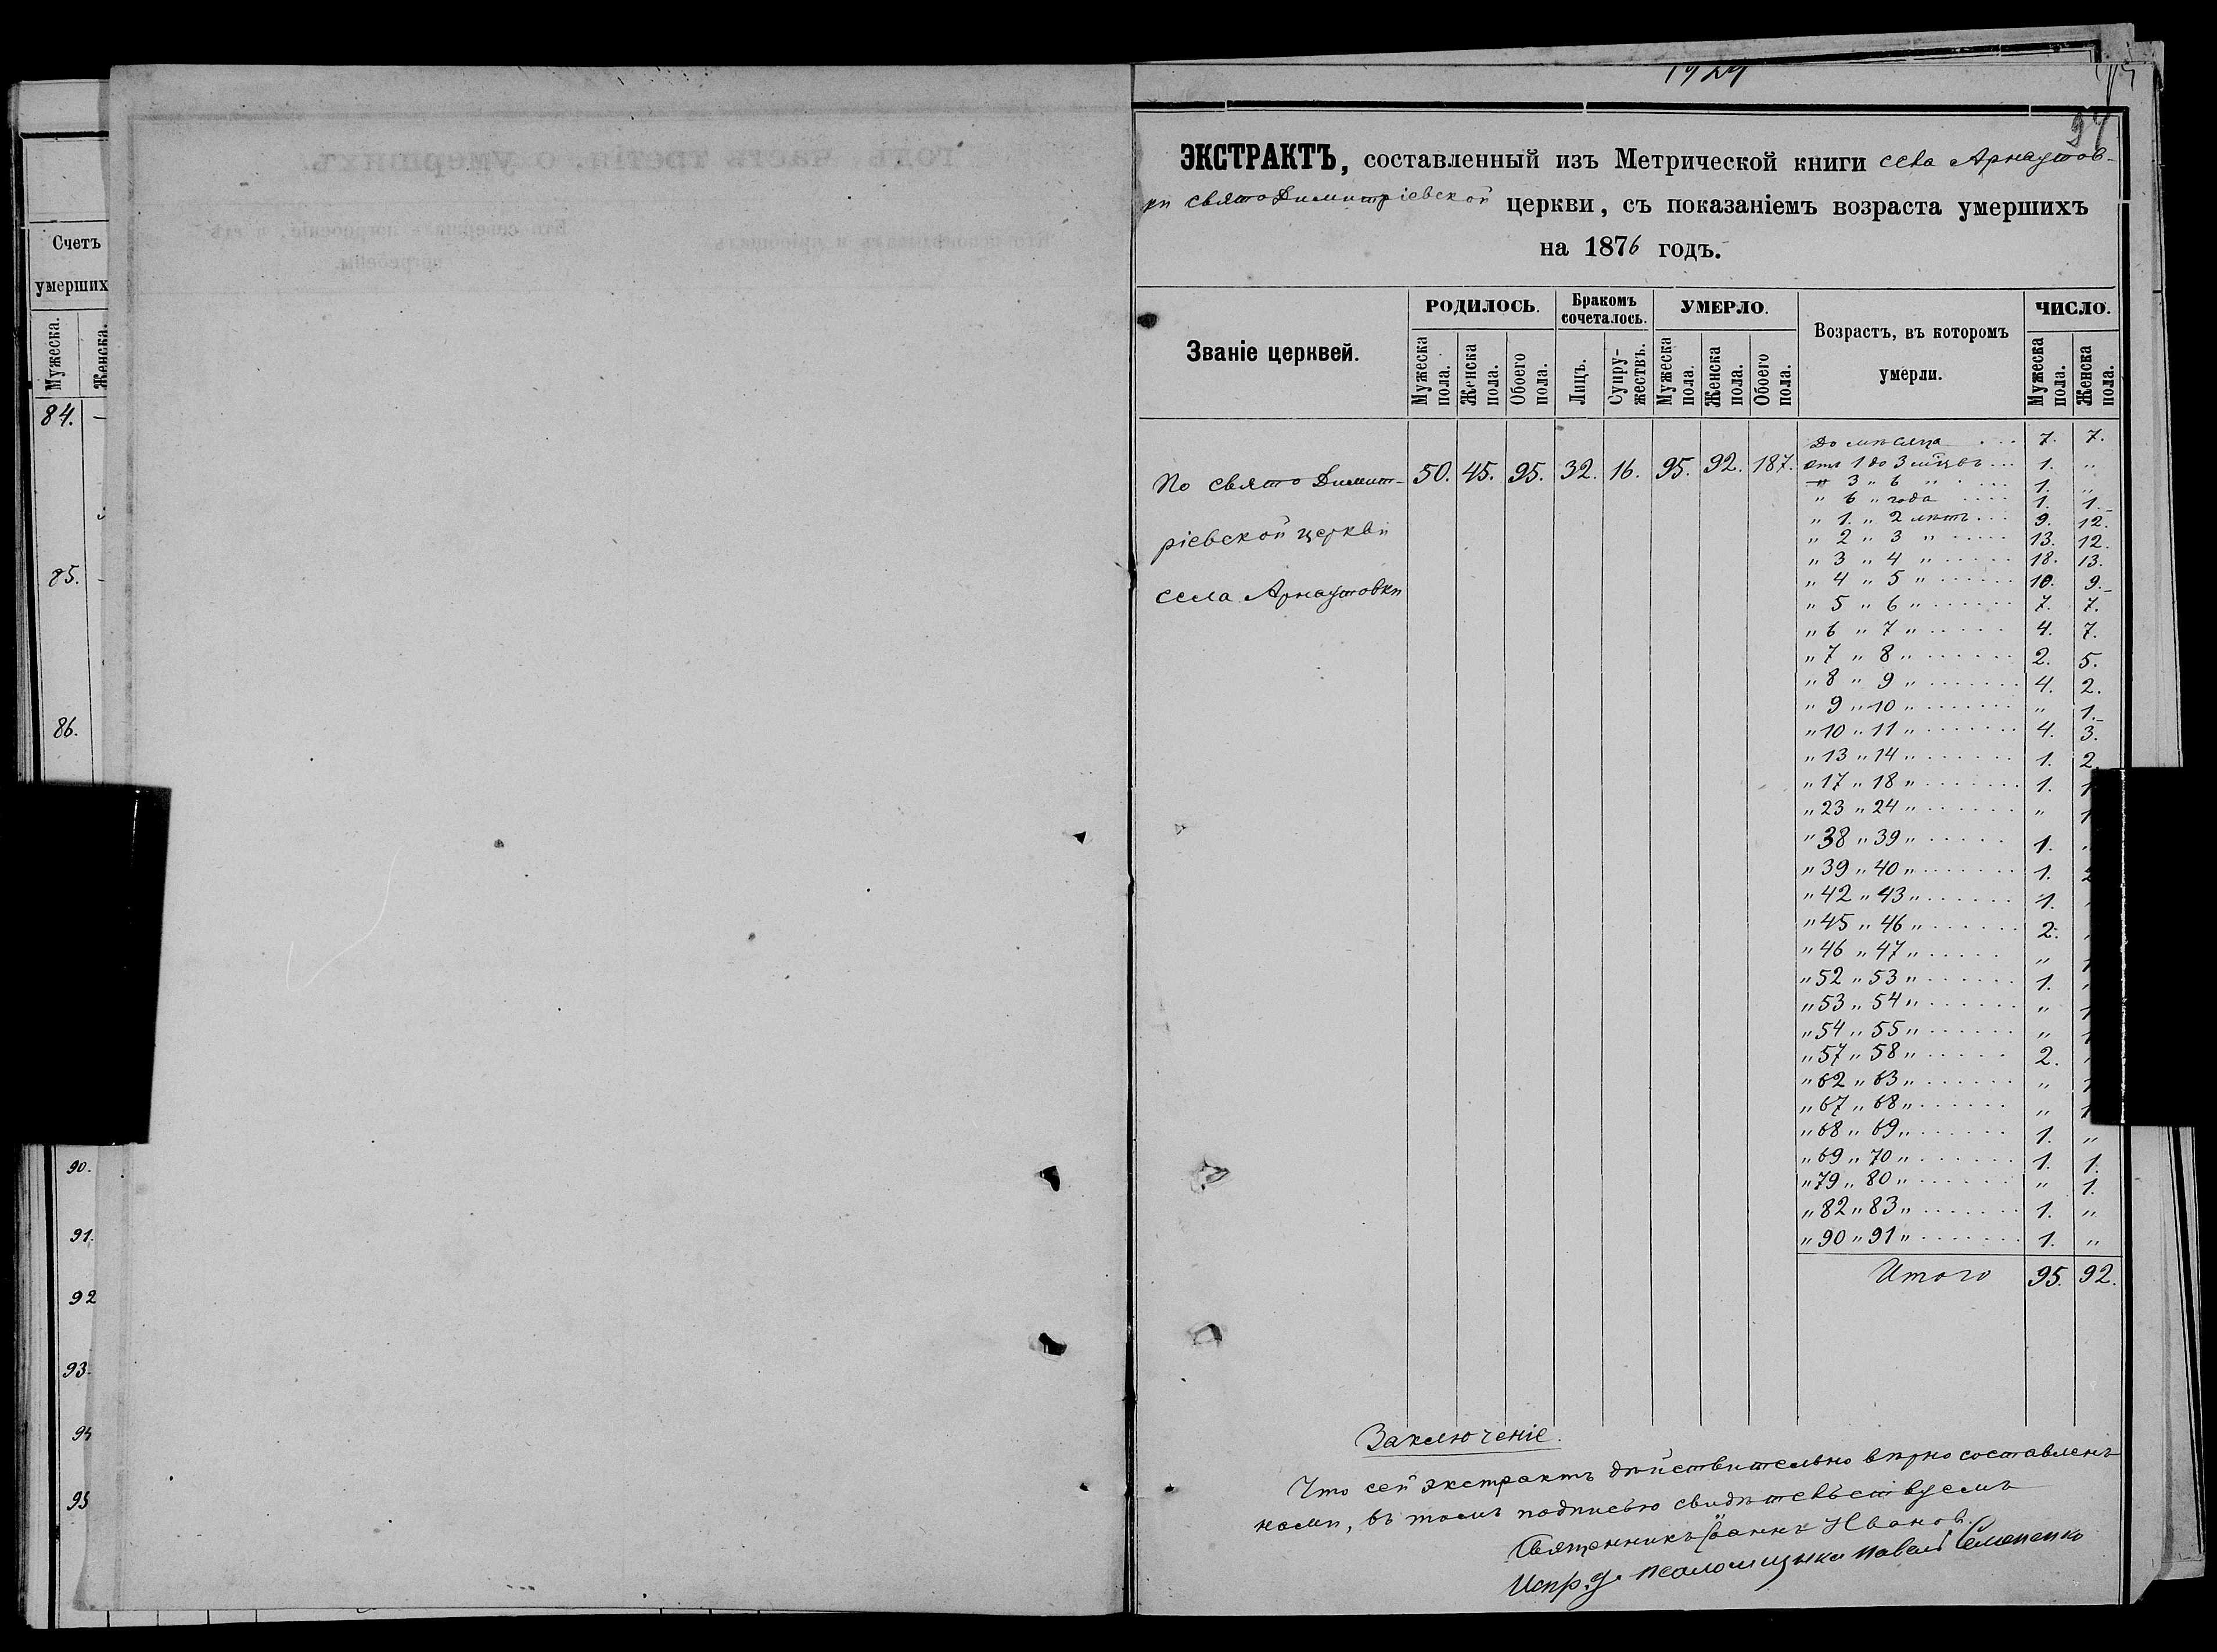 Счетъ
умерших
Мужеска.
Женска.
84.
85.
86.
90.
91.
92
93.
94
95
97
ЭКСТРАКТЪ, составленный изъ Метрической книги села Арнаутов-
ки святоДимитріевской церкви, съ показаніемъ возраста умершихъ
на 1876 годъ.
Званіе церквей.
РОДИЛОСЬ.
Бракомъ сочеталось.
УМЕРЛО.
Возрастъ, въ которомъ умерли.
ЧИСЛО.
Мужеска пола.
Женска пола.
Обоего пола.
Лицъ.
Супру-жествъ.
Мужеска пола.
Женска пола.
Обоего пола.
Мужеска пола.
Женска пола.
По свято Димит- 50. 45. 95. 32. 16. 95. 92. 187.
ріевской церкви
села Арнаутовки
До мѣсяца ... 7. 7.
Отъ 1 до 3 мѣцовъ ... 1. "
" 3 " 6 " .... 1. "
" 6 " года .... 1. 1.
" 1. " 2 лѣтъ ... 9. 12.
" 2 " 3 " ..... 13. 12.
" 3 " 4 " ...... 18. 13.
" 4 " 5 " ...... 10. 9.
" 5 " 6 " ...... 7. 7.
" 6 " 7 " ..... 4. 7.
" 7 " 8 " ...... 2. 5.
" 8 " 9 " ....... 4. 2.
" 9 " 10 " ....... " 1.
" 10 " 11 " ....... 4. 3.
" 13 " 14 " ...... 1. 2.
" 17 " 18 " ....... 1. 1
" 23 " 24 " ...... " 1
" 38 " 39 " ...... 1.
" 39 " 40 " ....... 1. 2
" 42 " 43 " ...... 1.
" 45 " 46 " ...... 2.
" 46 " 47 " ..... " 1
" 52 " 53 " ...... 1.
" 53 " 54 " ...... " 1
" 54 " 55 " ...... " 1
" 57 " 58 " ..... 2.
" 62 " 63 " ...... " 1
" 67 " 68 " ...... " 1
" 68 " 69 " ...... 1. "
" 69 " 70 " ...... 1. 1.
" 79 " 80 " ...... " 1.
" 82 " 83 " ....... 1. "
" 90 " 91 " ....... 1. "
Итого 95. 92.
Заключеніе.
Что сей экстрактъ дѣйствительно вѣрно составленъ
нами, въ томъ подписью свидѣтельствуемъ
Священникъ Іоаннъ Иванов.
Испр. д. псаломщика Павелъ Семененко